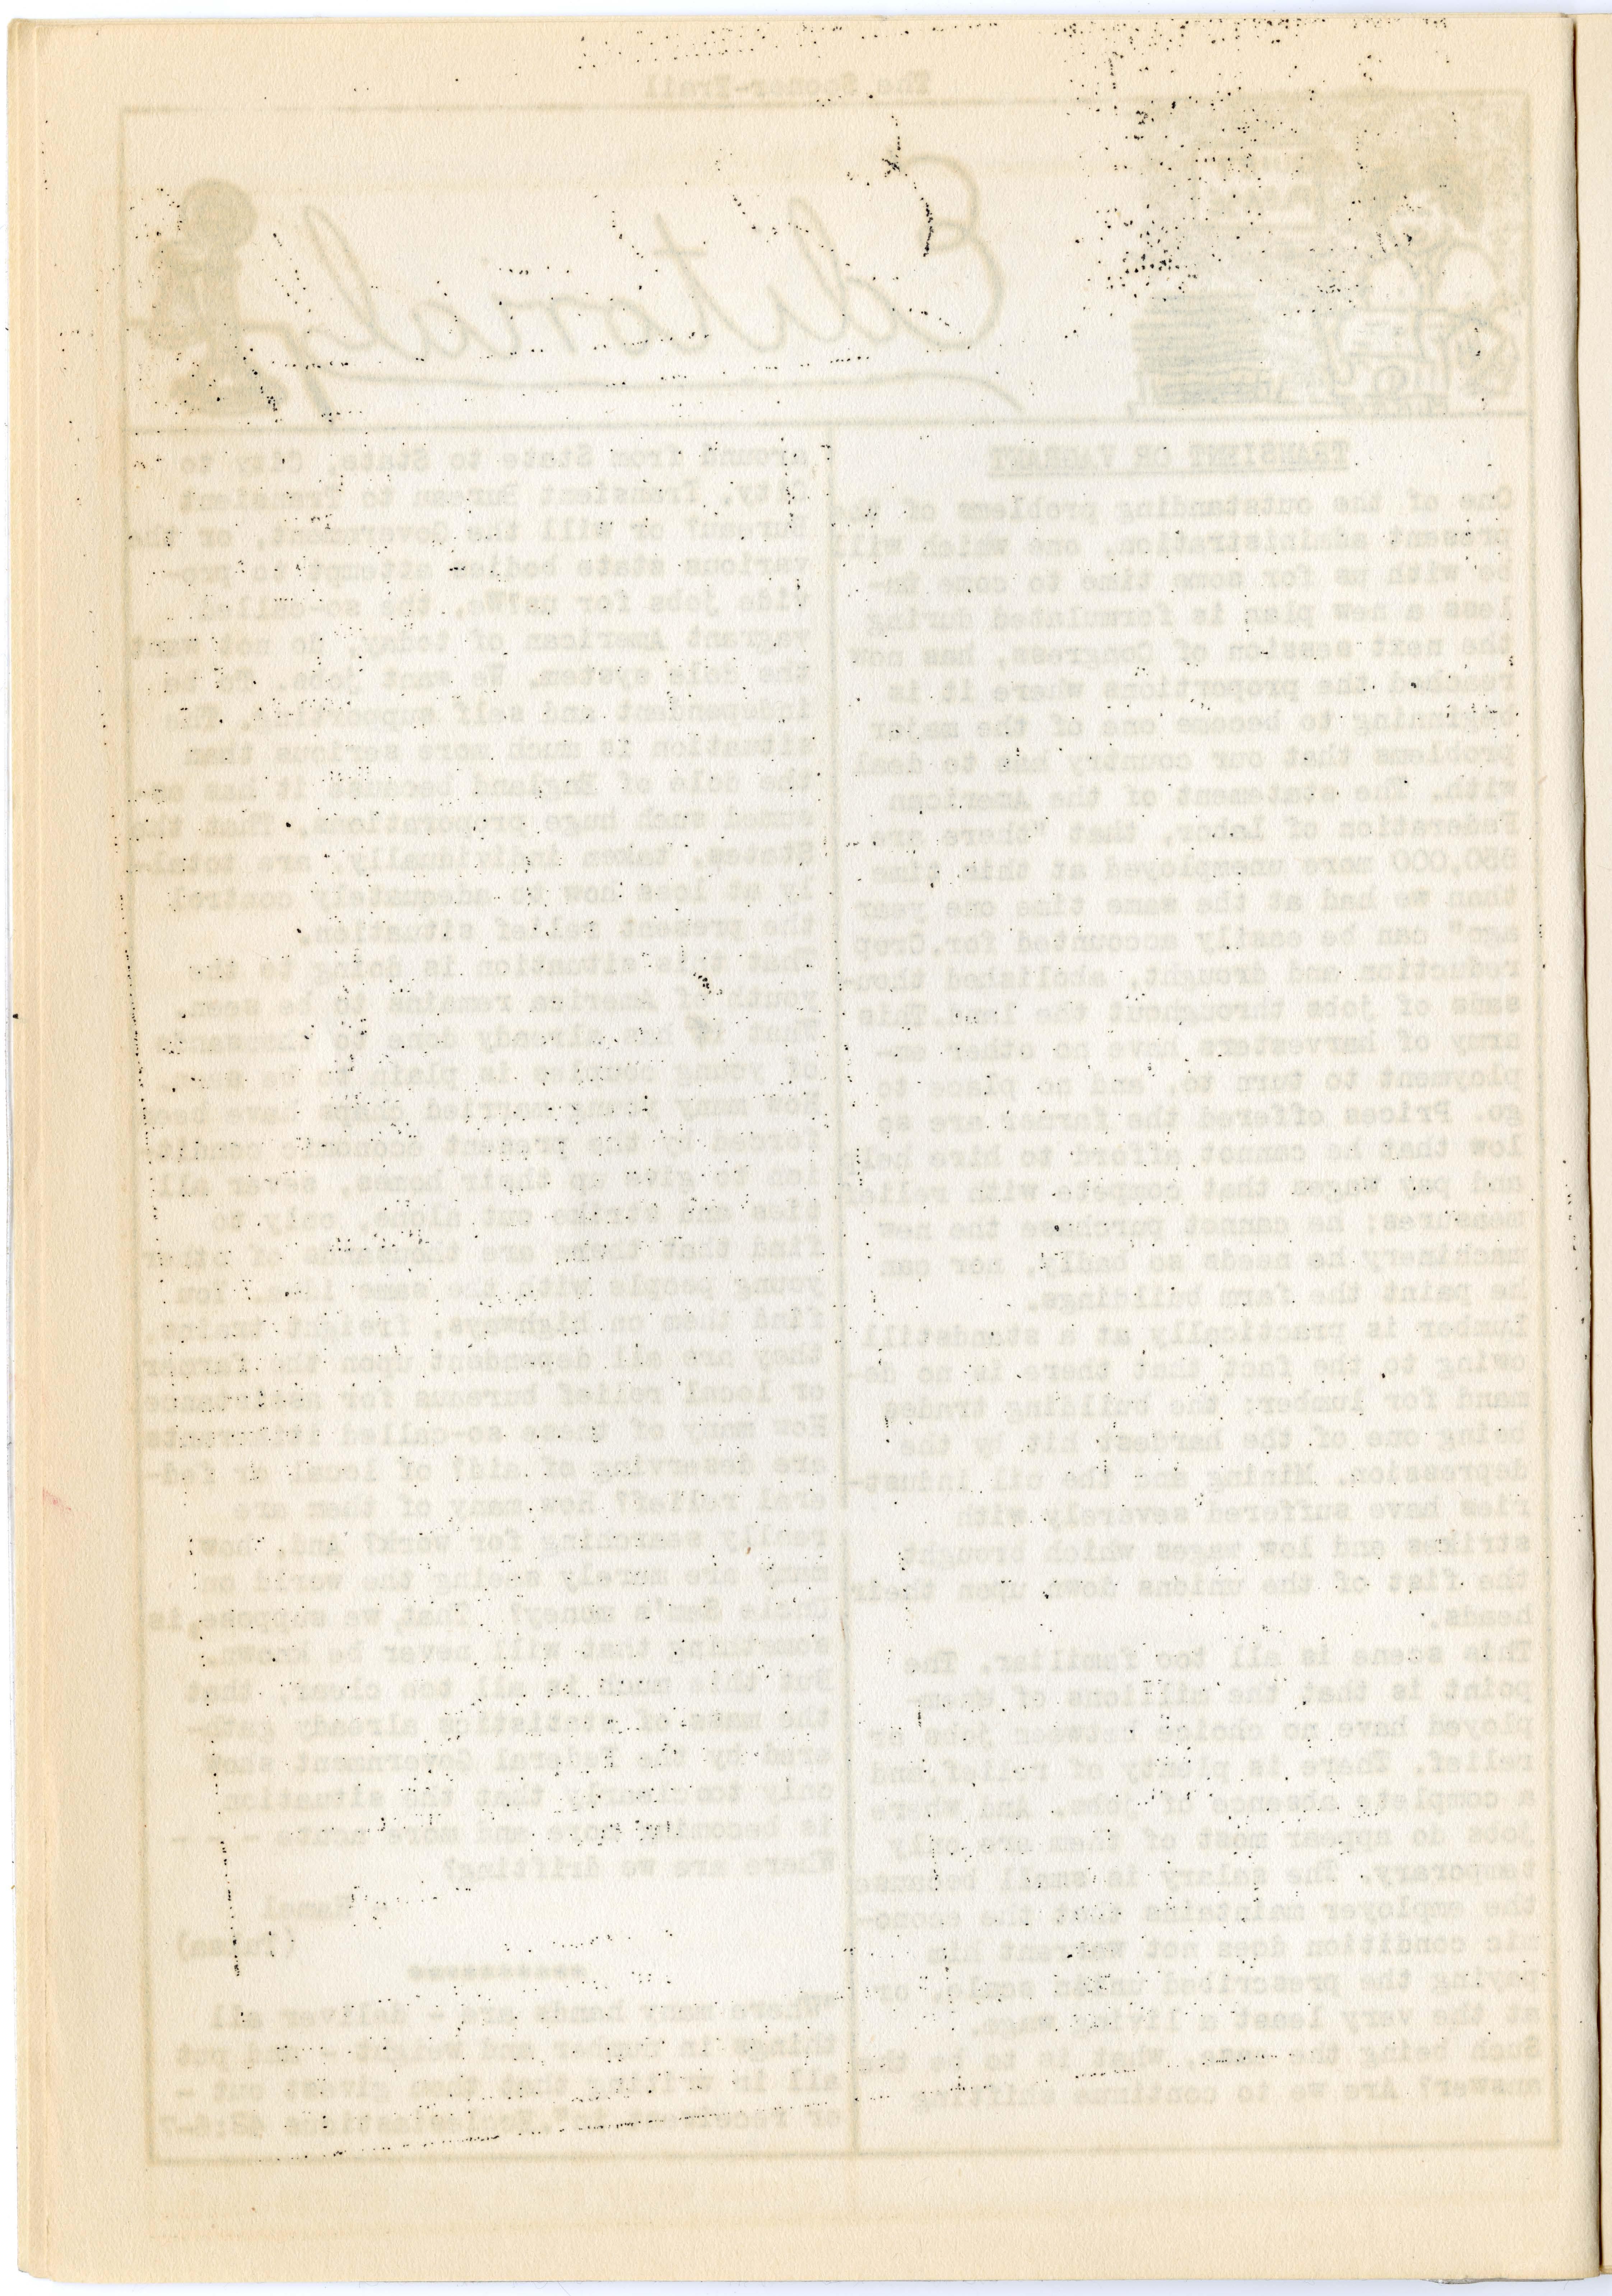 The Sooner-Trail
Editorials
TRANSIENT OR VAGRANT
One of the outstanding problems of the
present administration, one which will
be with us for some time to come un-
less a new plan is formulated during
the next session of Congress, has now
reached the proportions where it is
beginning to become one of the major
problems that our country has to deal
with. The statement of the American
Federation of Labor, that "there are
550,000 more unemployed at this time
than we had at the same time one year
ago" can be easily accounted for.Crop
reduction and drought, abolished thou-
sans of jobs throughout the land.This
army of harvesters have no other em-
ployment to turn to, and no place to
go. Prices offered the farmer are so
low that he cannot afford to hire help
and pay wages that compete with relief
measures; he cannot purchase the new
machinery he needs so badly, nor can
he paint the farm buildings.
Lumber is practically at a standstill
owing to the fact that there is no de-
mand for lumber; the building trades
being one of the hardest hit by the
depression. Mining and the oil indust-
ries have suffered severely with
strikes and low wages which brought
the fist of the unions down upon their
heads.
This scene is all too familiar. The
point is that the millions of
ployed have no choice between jobs or
relief. There is plenty of relief,and
a complete absence of jobs. And where
jobs do appear most of them are only
temporary. The salary is small because
the employer maintains that the econo-
mic condition does not warrant his
paying the prescribed union scale, or
at the very least a living wage.
Such being the case, what is to be the
answer? Are we to continue shifting
around from State to State, City to
City, Transient Bureau to Transient
Bureau? or will the Government, or the
various state bodies attempt to pro-
vide jobs for us?We, the so-called
vagrant American of today, do not want
the dole system. We want jobs. To be
independent and self supporting. The
situation is much more serious than
the dole of England because it has as-
sumed such huge proportions. That the
States, taken individually, are total-
ly at loss how to adequately control
the present relief situation.
That this situation is doing to the
youth of America remains to be seen.
What it has already done to thousands
of young couples is plain to be seen.
How many young married have been
forced by the present economic condit-
ion to give up their homes, sever all
ties and strike out alone, only to
find that there are thousands of other
young people with the same idea. You
find them on highways, freight trains,
they are all dependent upon the farmer
or local relief bureaus for assistance
How many of these so-called itinerants
are deserving of aid? of local or fed-
eral relief? How many of them are
really searching for work? And, how
many are merely seeing the world on
Uncle Sam's money? That, we suppose,is
something that will never be known.
But this much is all too clear, that
the mass of statistics already gath-
ered by the Federal Government show
only too clearly that the situation
is becoming more and more acute - - -
Where are we drifting?
Hamel
**********
Where many hands are - deliver all
things in number and weight - and put
all in writing that thou givest out -
or 42:6-7